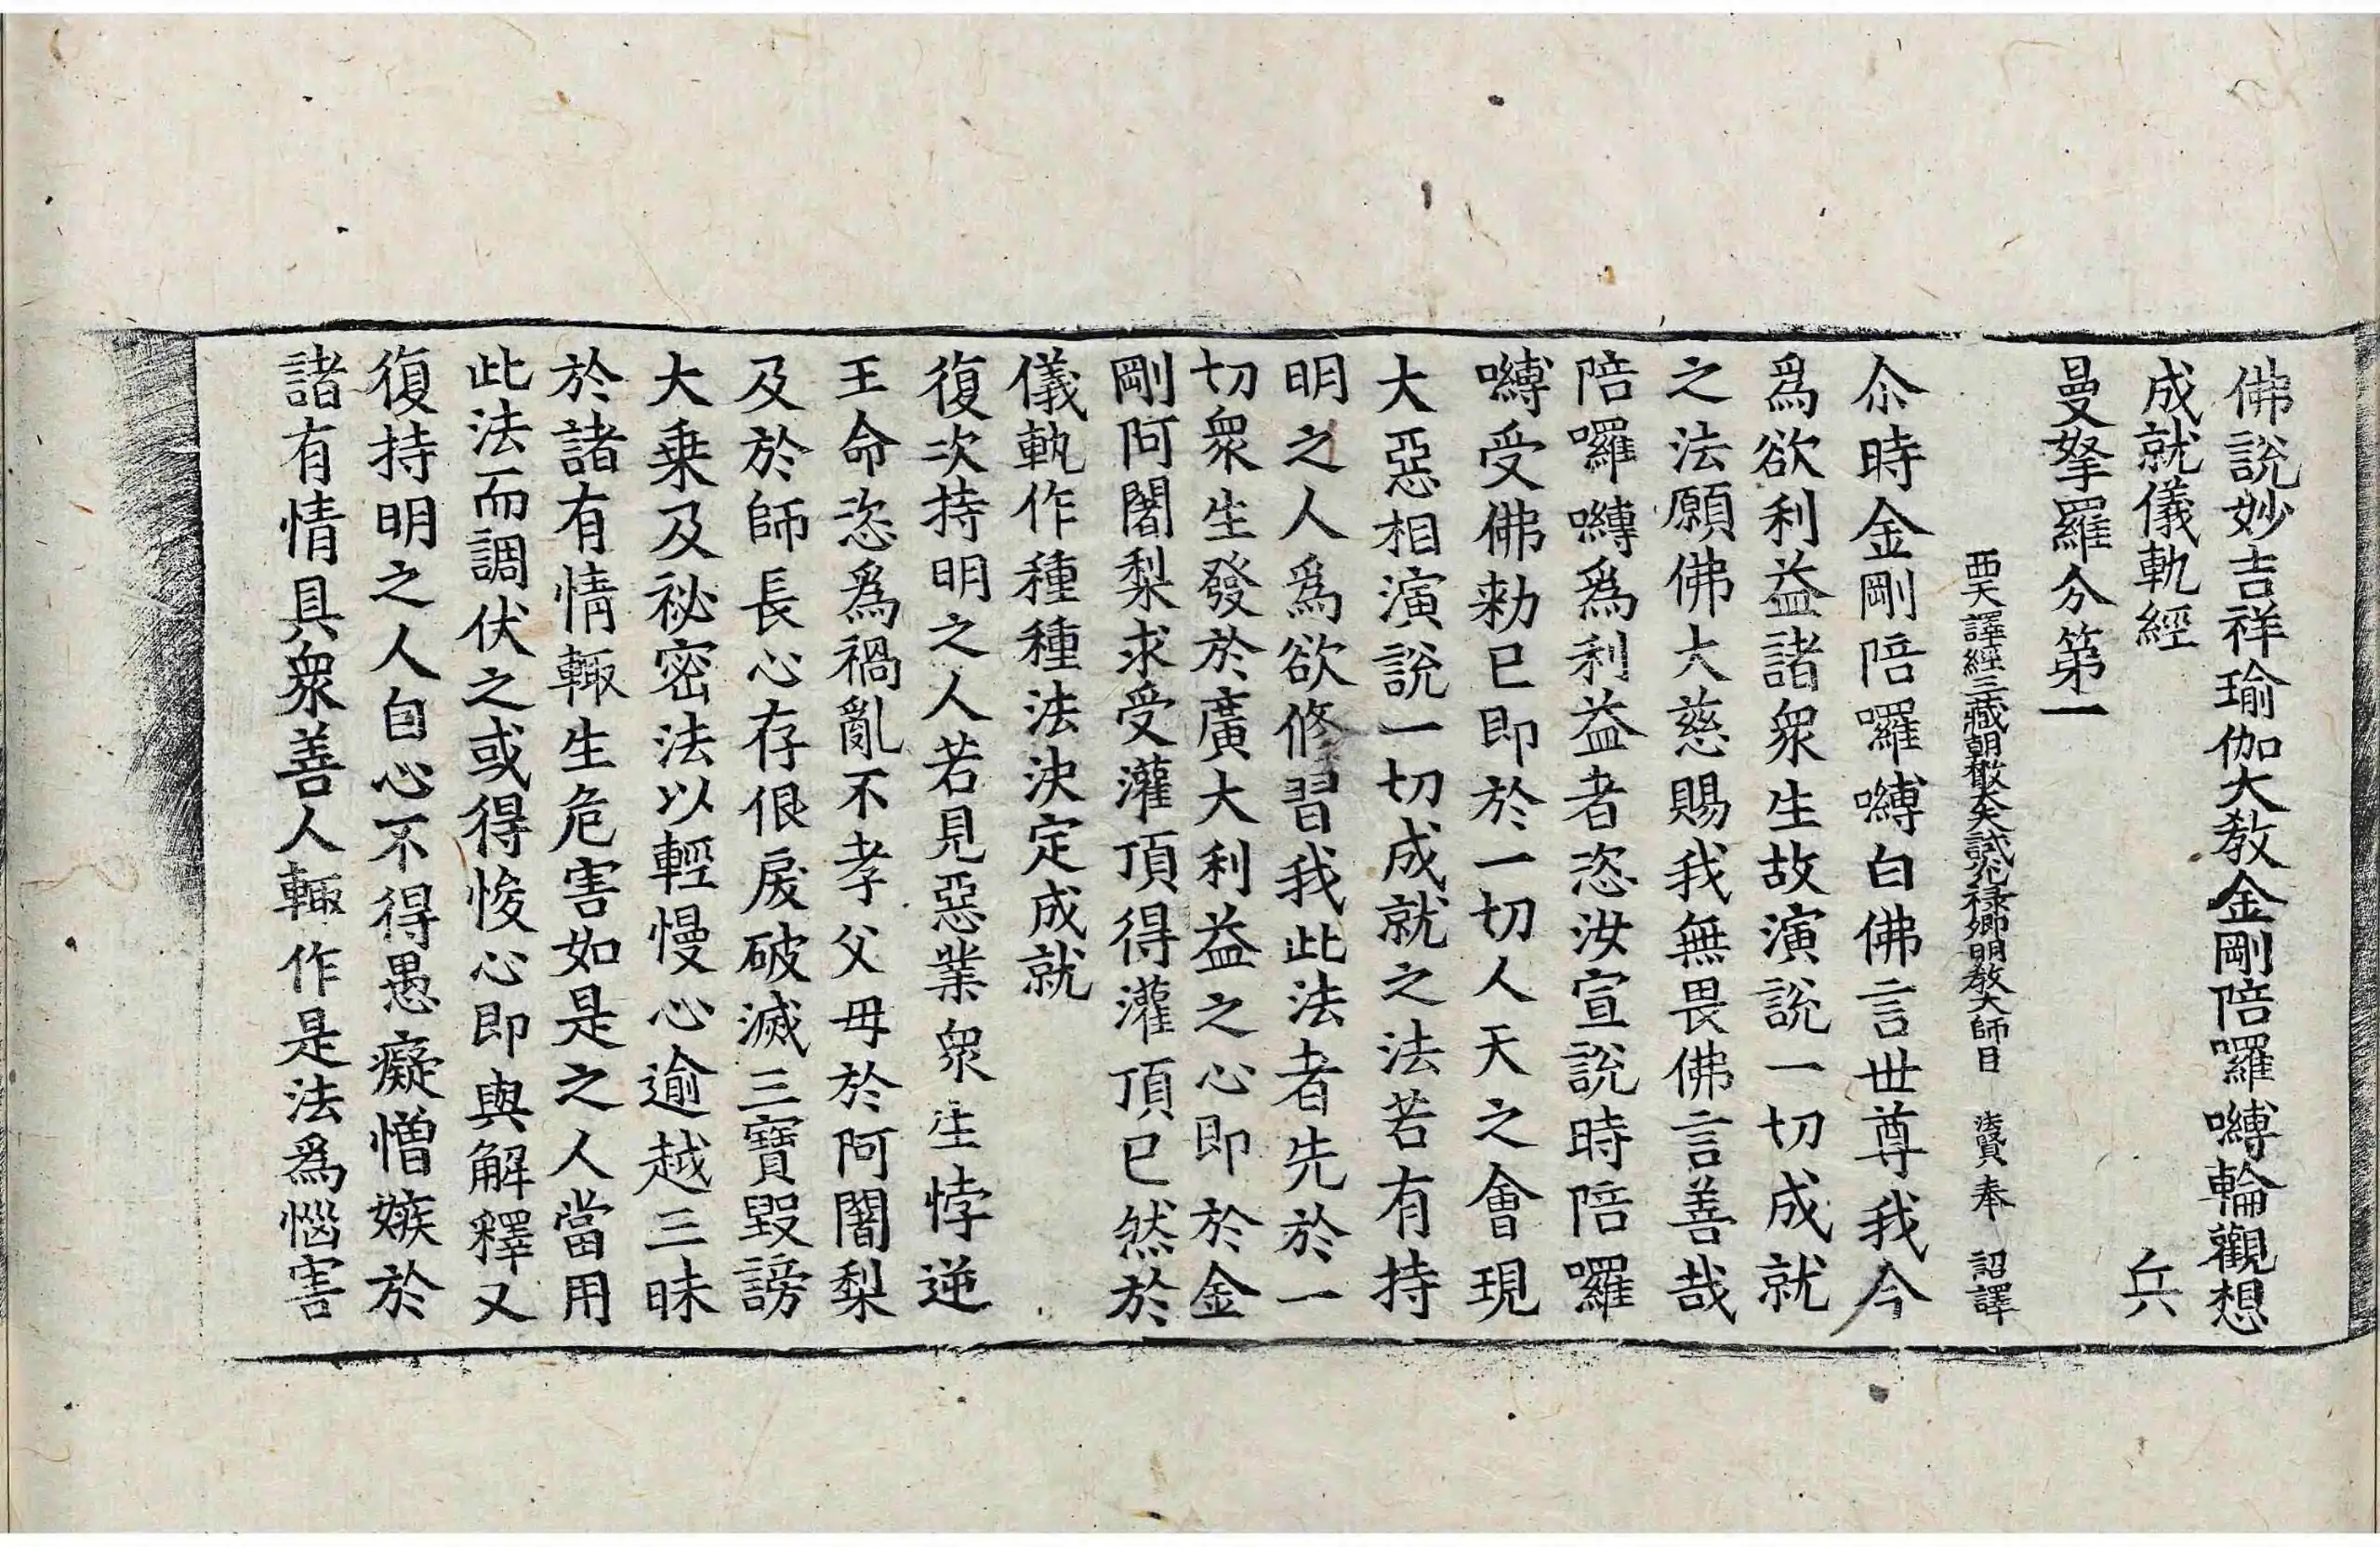 佛說妙吉祥瑜伽大教金剛陪囉嚩輪觀想
成就儀軌經 兵
曼拏羅分第一
西天譯經三藏朝散大夫試光祿卿明教大師臣 法賢 奉 詔譯
尒時金剛陪囉嚩白佛言世尊我今
爲欲利益諸衆生故演說一切成就
之法願佛大慈賜我無畏佛言善哉
陪囉嚩爲利益者恣汝宣說時陪囉
嚩受佛勑已即於一切人天之會現
大惡相演說一切成就之法若有持
明之人爲欲修習我此法者先於一
切衆生發於廣大利益之心即於金
剛阿闍梨求受灌頂得灌頂已然於
儀軌作種種法決定成就
復次持明之人若見惡業衆生悖逆
王命恣爲禍亂不孝父母於阿闍梨
及於師長心存佷戾破滅三寶毀謗
大乗及祕密法以輕慢心逾越三昧
於諸有情輙生危害如是之人當用
此法而調伏之或得悛心即與解釋又
復持明之人自心不得愚癡憎嫉於
諸有情具衆善人輙作是法爲惱害